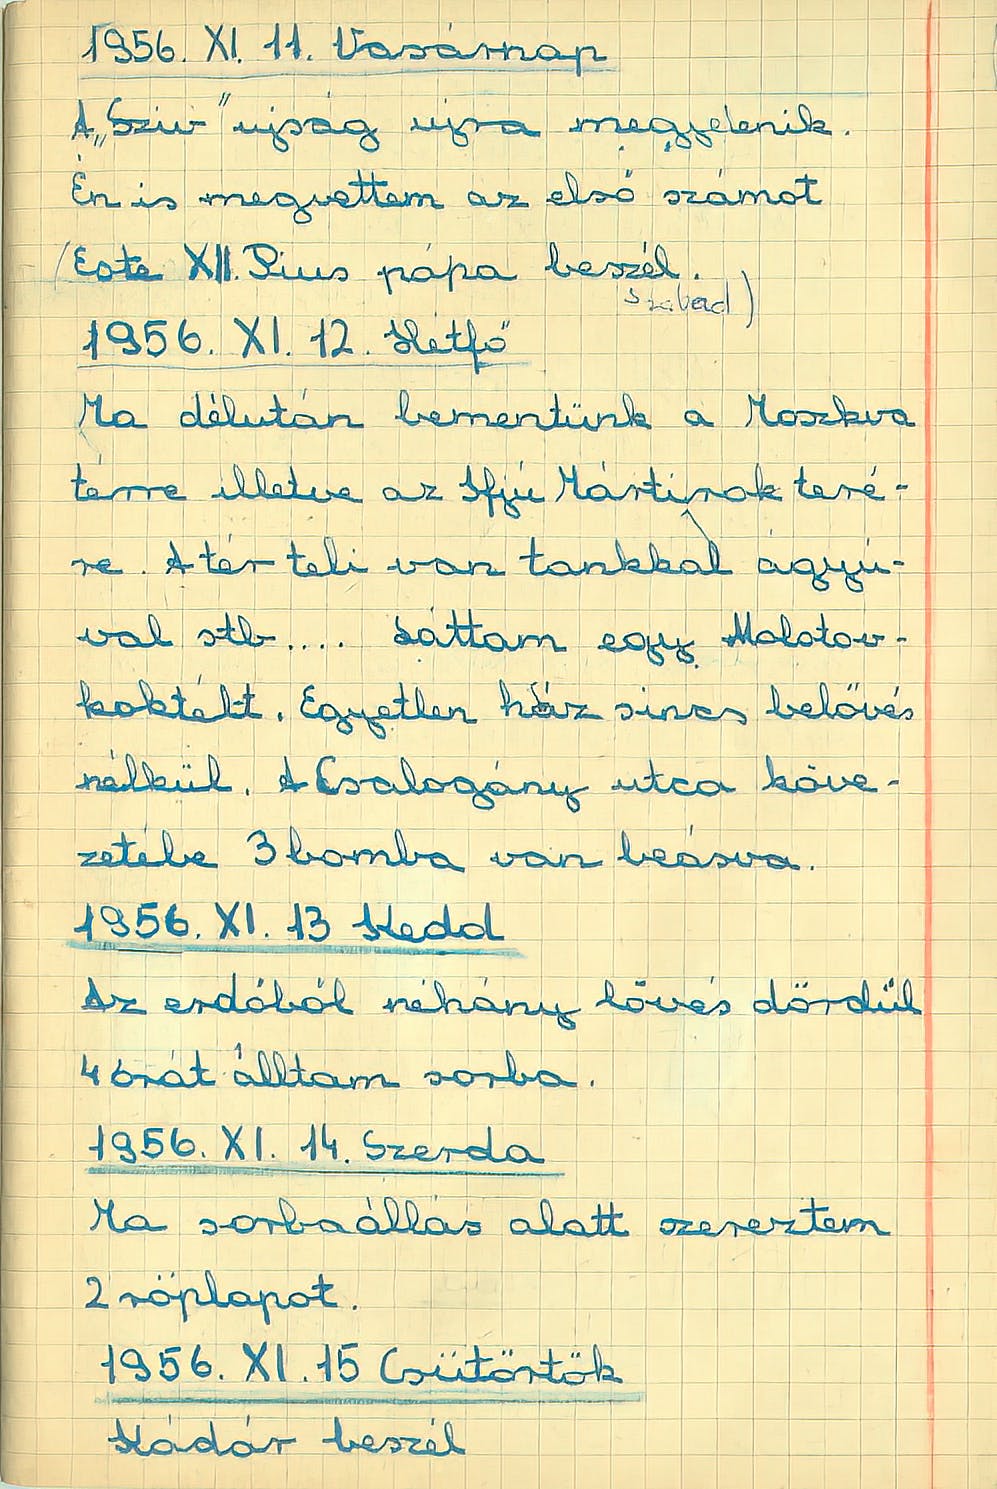 1956. XI. 11. Vasárnap
A „Sziv" ujság ujra megjelenik.
Én is megvettem az első számot
(Este XII. Pius pápa beszél.
szabad)
1956. XI. 12. Hétfő
Ma délután bementünk a Moszkva
térre illetve az Ifjú Mártirok teré-
re. A tér teli van tankkal ágyú-
val stb.... Láttam egy Molotov-
koktélt. Egyetlen ház sincs belövés
nélkül. A Csalogány utca köve-
zetébe 3 bomba van beásva.
1956. XI. 13 Kedd
Az erdőből néhány lövés dördül
4 órát álltam sorba.
1956. XI. 14. Szerda
Ma sorbaállás alatt szereztem
2 röplapot.
1956. XI. 15 Csütörtök
Kádár beszél